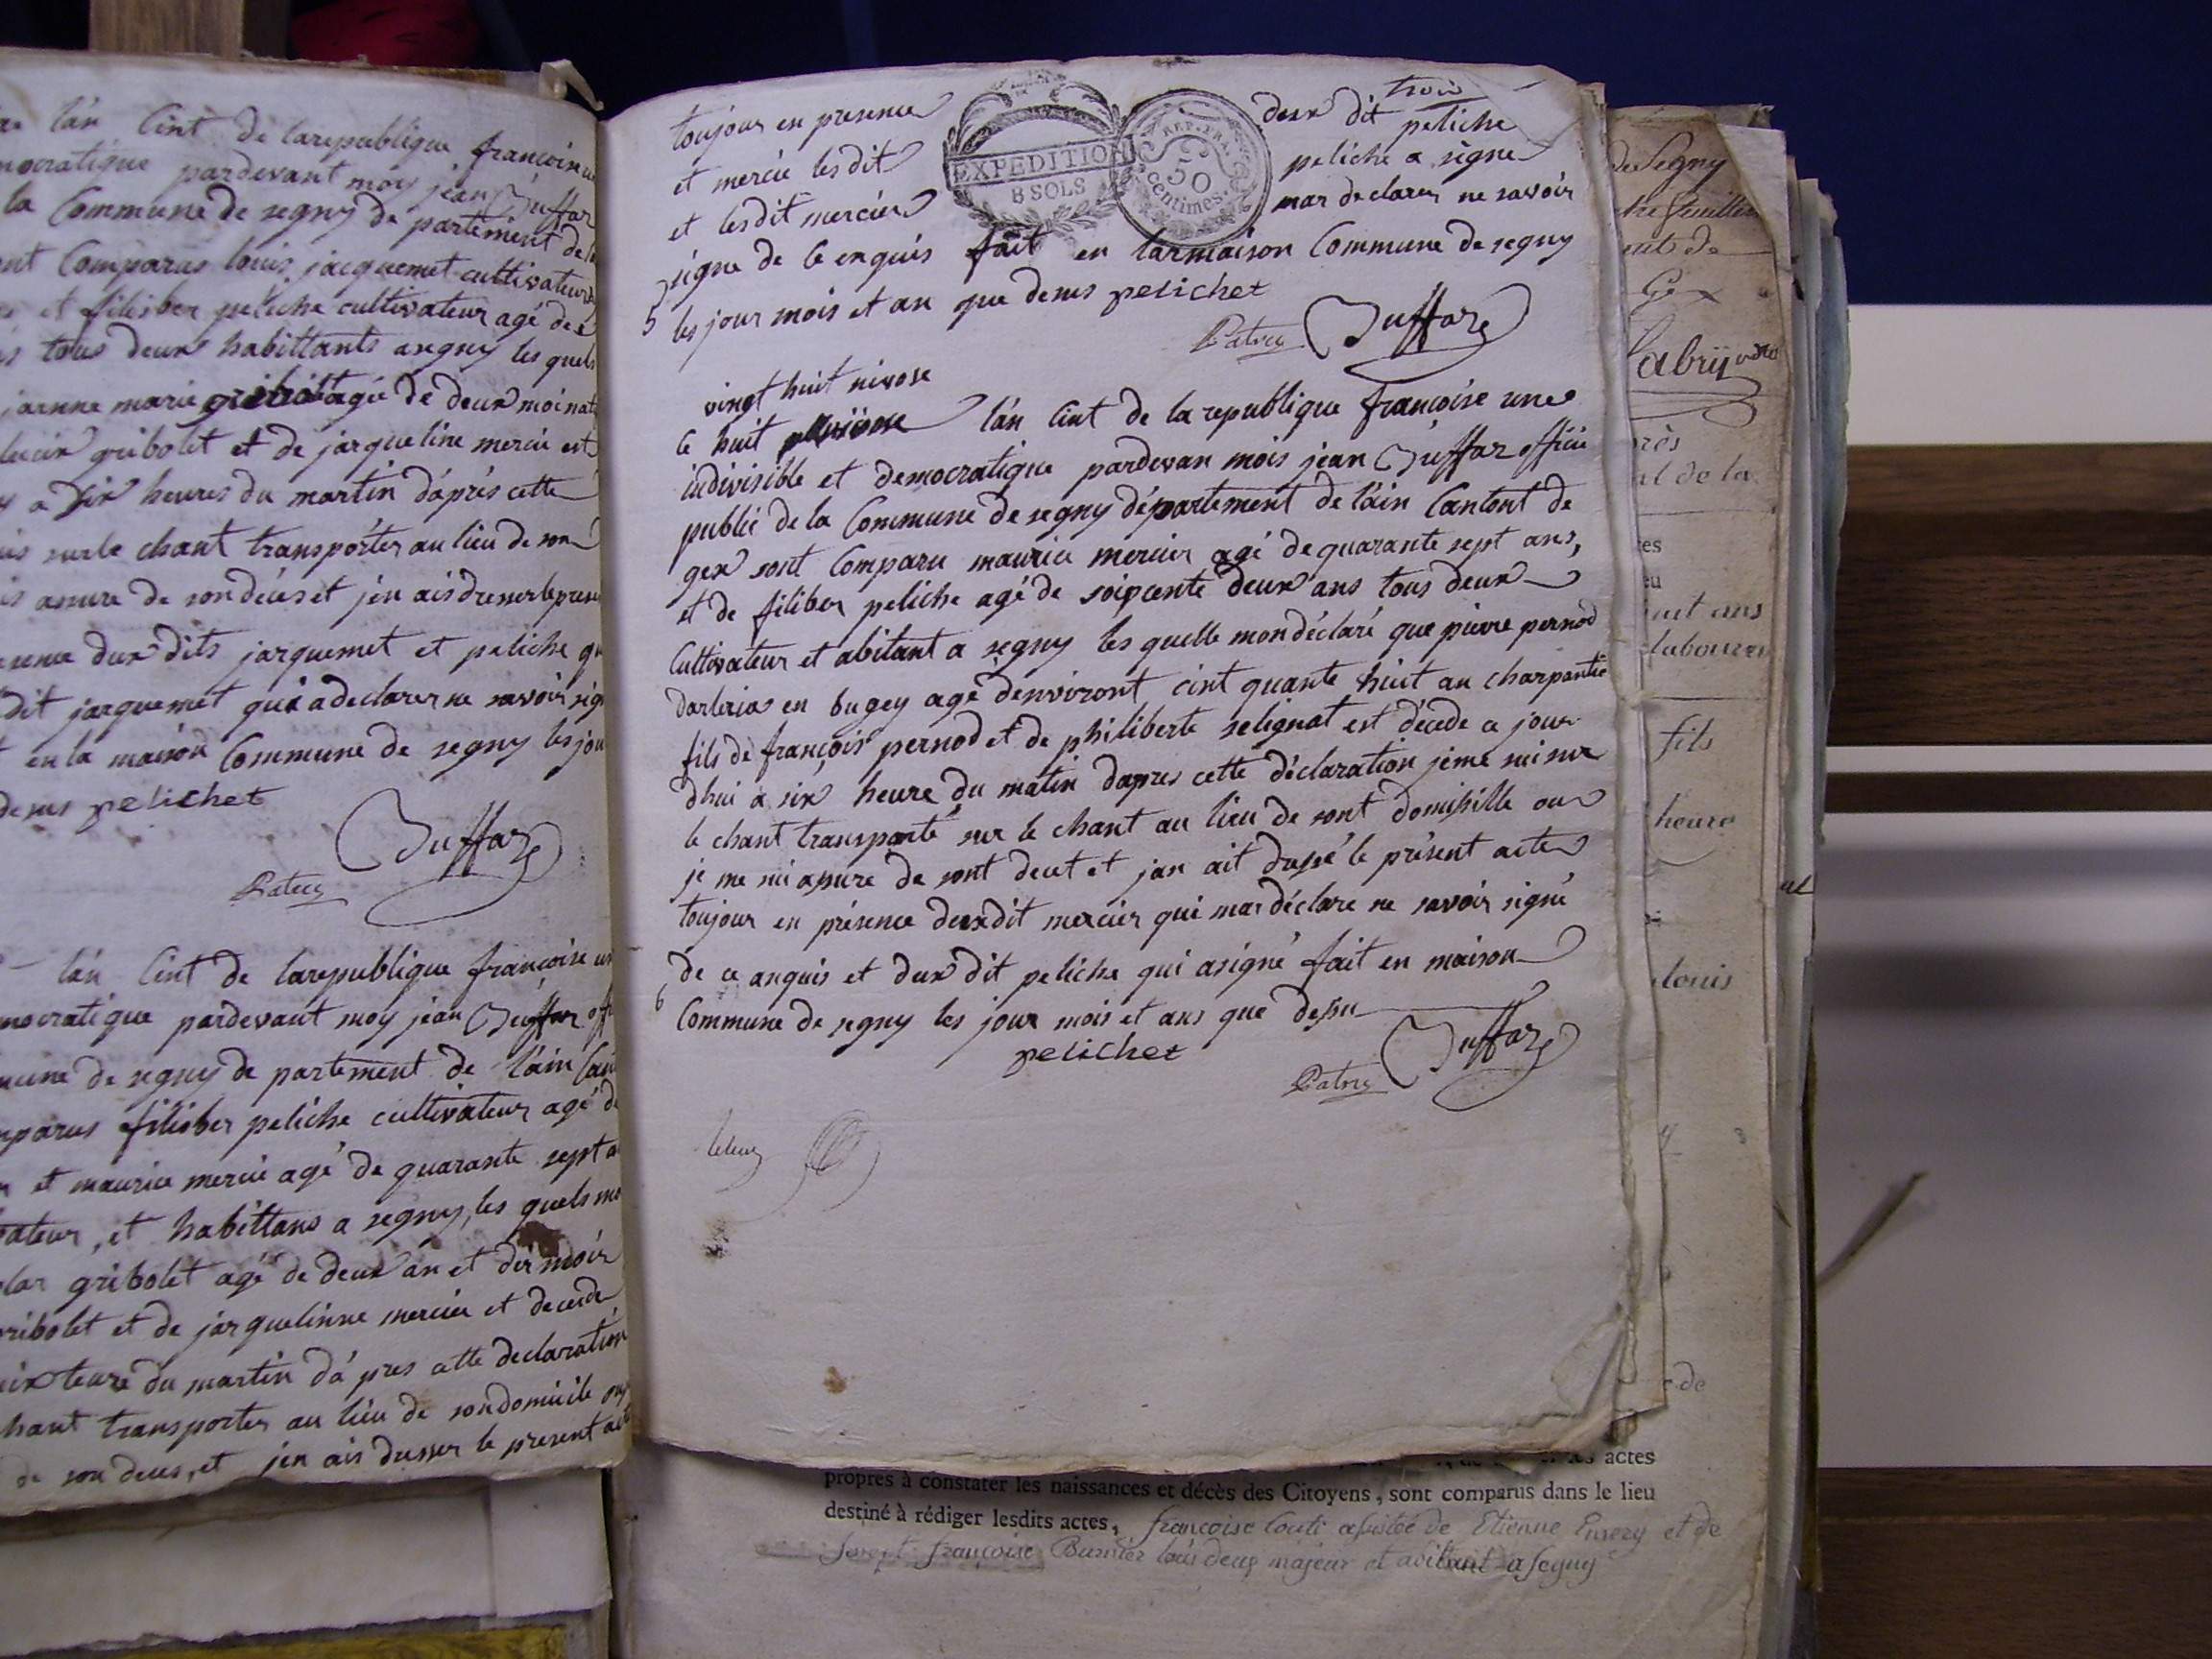 lán Cint de larepublique françoise
mocratique pardevant moy jean Buffaz
la Commune de segny de partement de
ont Comparus louis jacquemet cultivateur
et filisber peliche cultivateur agé de
tous deux habittants asegny les quels
jeanne marie gribolet agée de deux moi nat
gribolet et de jarqueline mercie est
a dix heures du martin dáprés cette
surle chant transpórter au lieu de son
assure de son décés et jén ais dresser le presen
dux dits jarquemet et peliche qu
dit jarquemet qui a declarer ne savoir sig
en la maison Commune de segny les jou
de sus pelichet
Buffaz
Patru
lán Cint de larepublique françoise un
mocratique pardevant moy jean Buffaz off
mune de segny de partement de láin Cant
mparus filisber peliche cultivateur agé de
et maurice mercie agé de quarante sept a
vateur, et habittans a segny, les quels mo
gribolet agé de deux an et dix moir
gribolet et de jarquelinne mercier et decede
heure du martin dá pres cette declaration
chant transporter au lieu de sondomicile ou
de son deces, et jén ais dresser le present act
trois
toujour en presence EXPEDITION 8 SOLS REP. FRA. 50 centimes. deux dit peliche
et mercie lesdit peliche a signe
et lesdit mercier mar declarer ne savoir
signe de ce enquis fait en larmaison Commune de segny
5 les jour mois et an que desus pelichet
Patru Buffaz
vingt huit nivose
le huit pluviose lán Cint de la republique françoise une
indivisible et democratique pardevan mois jean Buffaz officie
publie de la Commune de segny département de láin Cantont de
gex sont Comparu maurice mercier agé de quarante sept ans,
et de filiber peliche agé de soixcente deux ans tous deux
Cultivateur et abitant a segny les quelle mon déclaré que pierre pernod
darlerias en bugey agé dénviront cint quante huit an charpantié
fils de françois pernod et de philiberte selignat est décede ce jour
dhui a six heure du matin dapres cette déclaration jéme sui sur
le chant transporté sur le chant au lieu de sont domisille ou
je me sui asure de sont decet et jan ait dressé le présent acte
toujour en présence deuxdit mercier qui mar déclare ne savoir signé
de ce anquis et dux dit peliche qui asigné fait en maison
6 Commune de segny les jour mois et ans que desu
pelichet Patru Buffaz
de Segny
Gex
près
al de la
huit ans
laboureur
fils
heure
louis
de
actes
propres à constater les naissances et décès des Citoyens, sont comparus dans le lieu
destiné à rédiger lesdits actes, françoise Couti épistée de Etienne Emery et de
françoise Burnier tous deux majeur et abitant a Segny